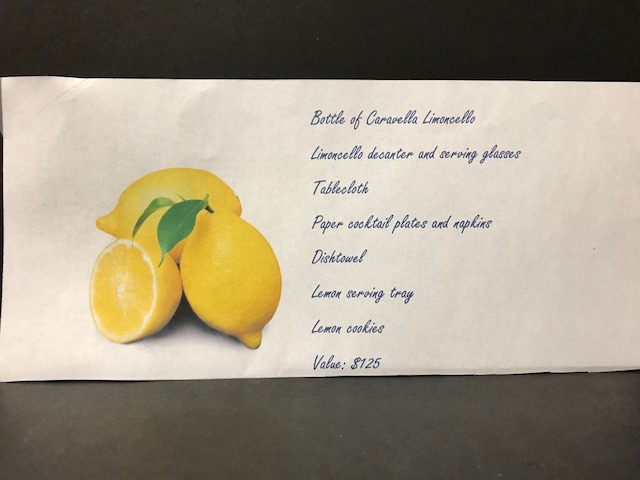 Bottle of Caravella Limoncello
Limoncello decanter and serving glasses
Tablecloth
Paper cocktail plates and napkins
Dishtowel
Lemon serving tray
Lemon cookies
Value: $125